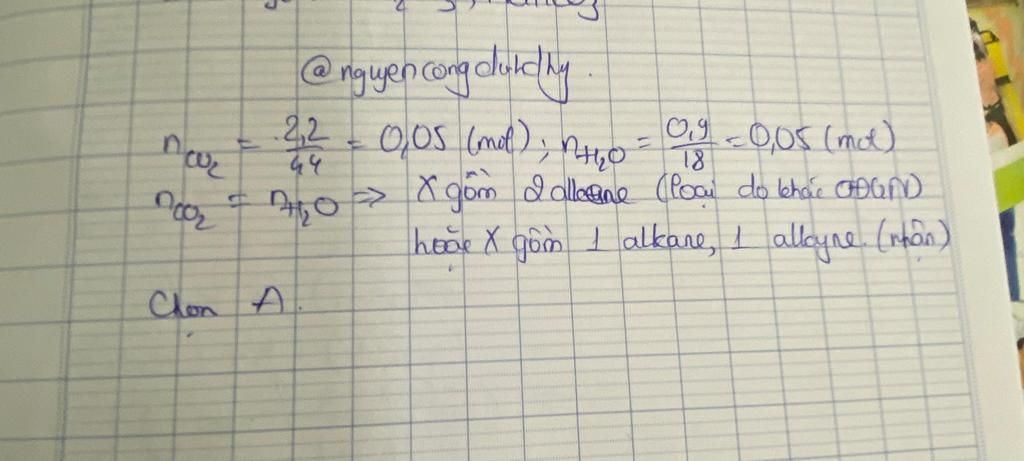 @nguyencongduhdhy.
nCO2 = 2,2/44 = 0,05 (mol); nH2O = 0,9/18 = 0,05 (mol)
nCO2 = nH2O => X gồm 2 alkene (loại do khác CTĐGN)
hoặc X gồm 1 alkane, 1 alkyne. (nhận)
Chọn A.